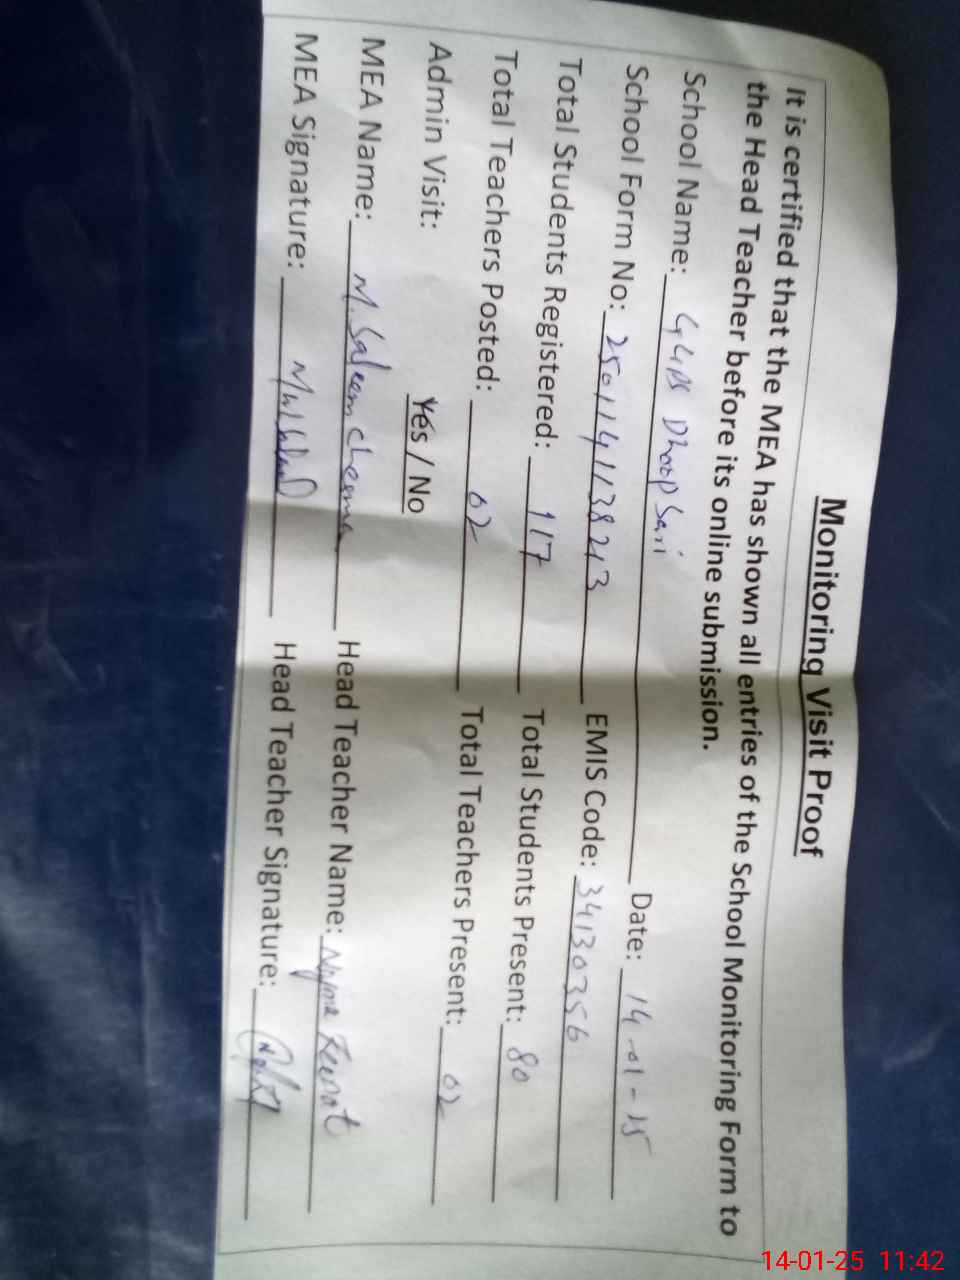 Monitoring Visit Proof
It is certified that the MEA has shown all entries of the School Monitoring Form to
the Head Teacher before its online submission.
School Name: GGPS Dhoop Sari Date: 14-01-25
School Form No: 2501141138213 EMIS Code: 34130356
Total Students Registered: 117 Total Students Present: 80
Total Teachers Posted: 02 Total Teachers Present: 02
Admin Visit: Yes / No
MEA Name: M. Saleem Cheema Head Teacher Name: Najma
MEA Signature: Head Teacher Signature:
14-01-25 11:42